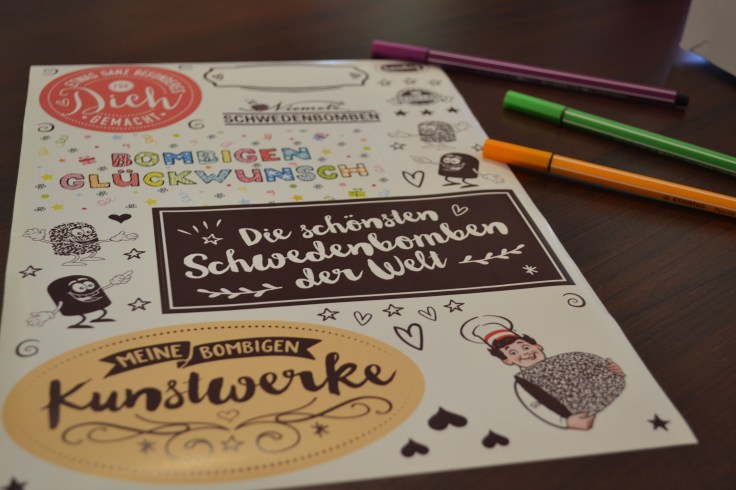 ETWAS GANZ BESONDERES
FÜR
Dich
GEMACHT
Niemetz
SCHWEDENBOMBEN
BOMBIGEN
GLÜCKWUNSCH
Die schönsten
Schwedenbomben
der Welt
MEINE BOMBIGEN
Kunstwerke